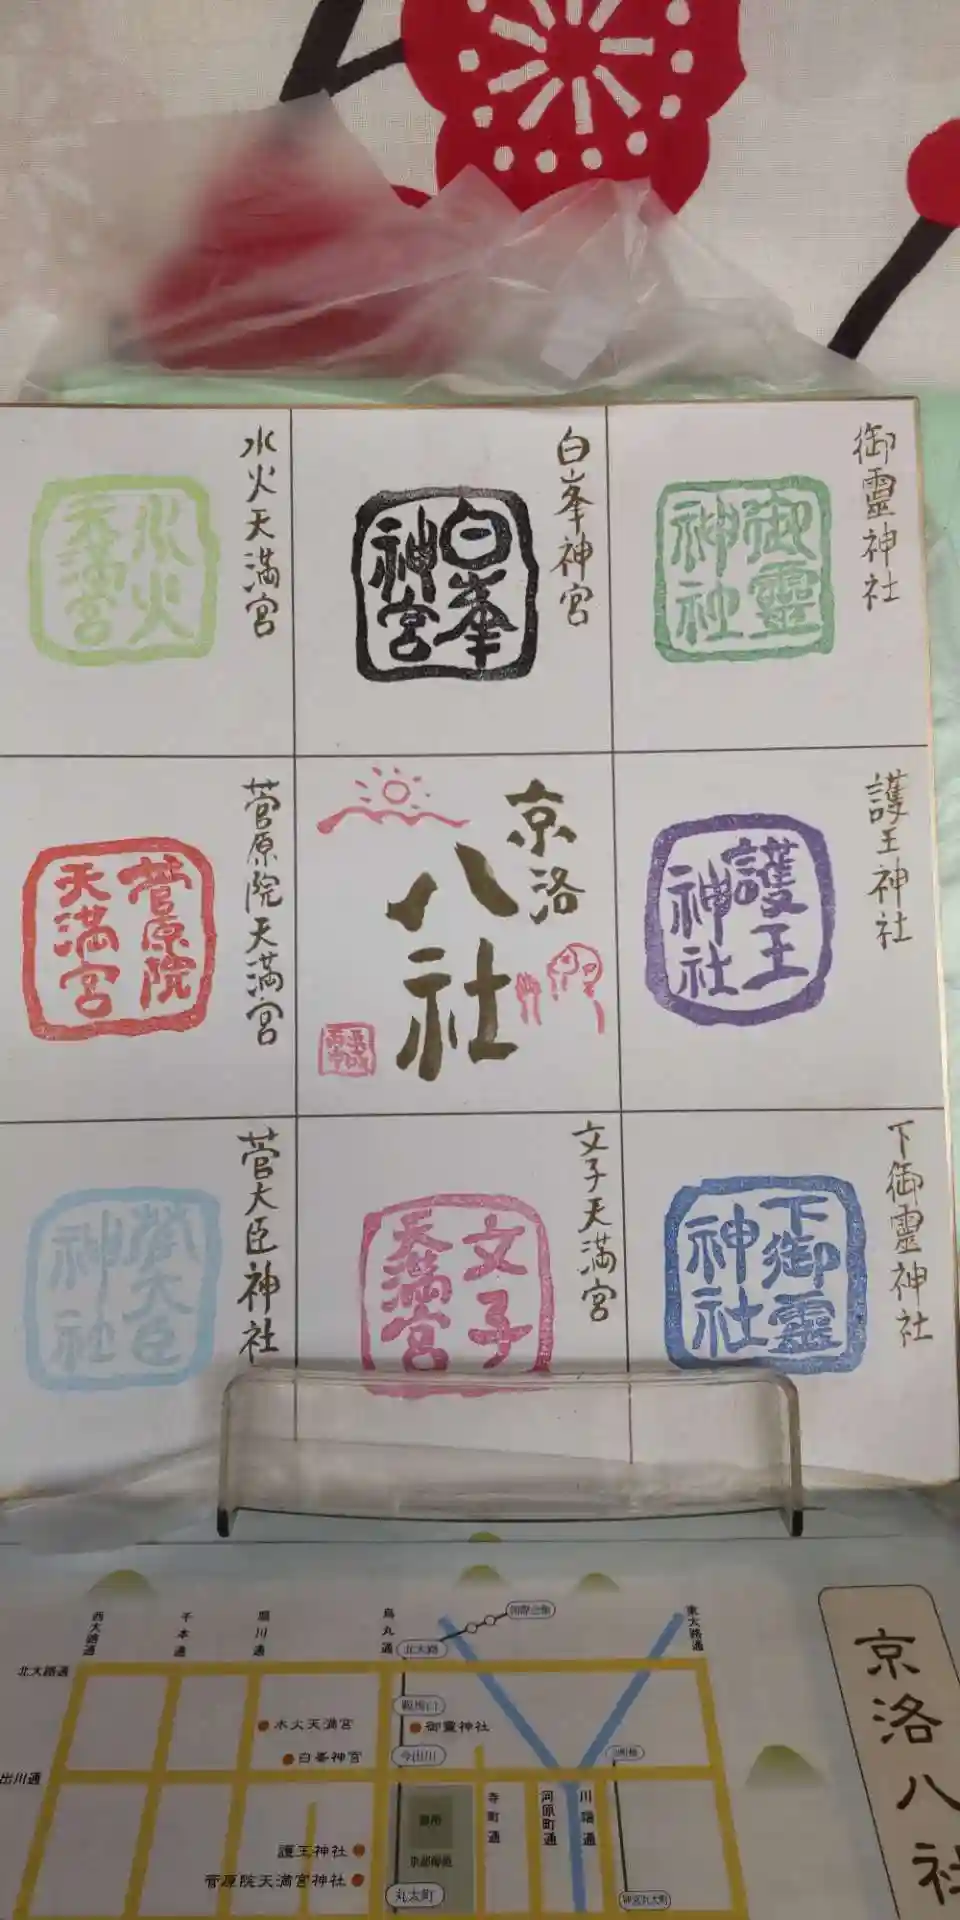 御靈神社
御靈神社
白峯神宮
白峯神宮
水火天満宮
水火天満宮
護王神社
護王神社
京洛
八社
菅原院天満宮
菅原院天満宮
下御靈神社
下御靈神社
文子天満宮
文子天満宮
菅大臣神社
菅大臣神社
京洛八社
西大路通
千本通
堀川通
烏丸通
国際会館
東大路通
北大路通
北大路
鞍馬口
水火天満宮
御靈神社
白峯神宮
今出川
出川通
御所
京都御苑
寺町通
河原町通
川端通
護王神社
菅原院天満宮神社
丸太町
神宮丸太町